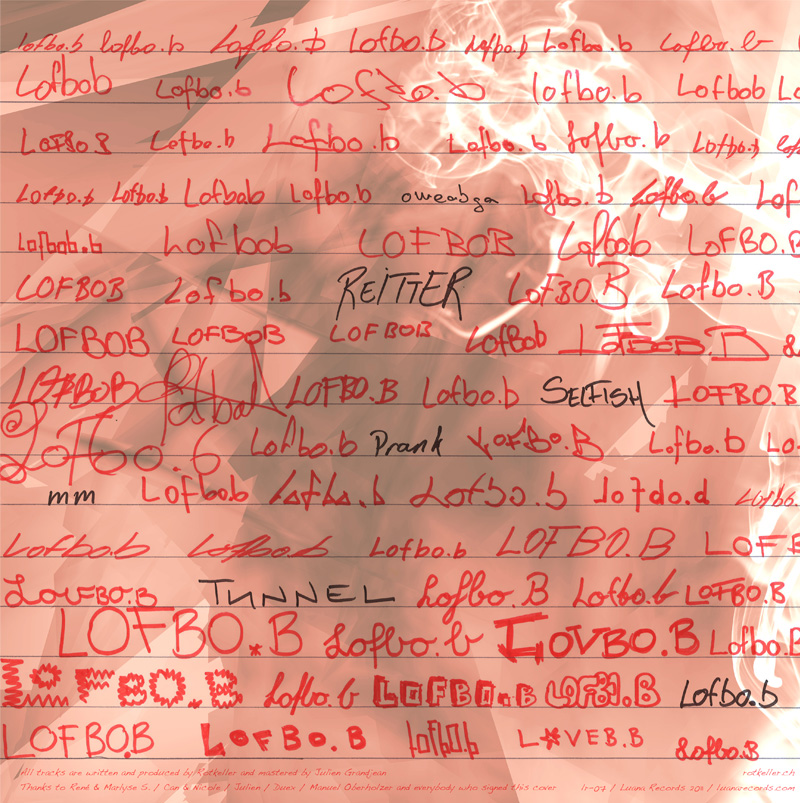 Lofbo.b Lofbo.b Lofbo.b Lofbo.b Lofbo.b Lofbo.b Lofbo.b
Lofbob Lofbo.b Lofbo.b Lofbo.b Lofbob Lo
LOFBO.B Lofbo.b Lofbo.b Lofbo.b Lofbo.b Lofbo.b
Lofbo.b Lofbo.b Lofbob Lofbo.b oweabga Lofbo.b Lofbo.b Lof
Lofbob.b Lofbob LOFBOB Lofbob LoFBO.B
LOFBOB Lofbo.b REITTER LoFBO.B Lofbo.B
LOFBOB LOFBOB LOFBOB Lofbob Lofbob.B
LOFBOB Lofbob LOFBO.B Lofbo.b SELFISH LOFBO.B
Lofbo.b Lofbo.b Prank LofBo.B Lofbo.b Lo
mm Lofbob Lofbo.b Lofbo.b lo7do.d Lofbo.
Lofbo.b Lofbo.b Lofbo.b LOFBO.B LOFB
LOUFBO.B TUNNEL Lofbo.B Lofbo.b LOFBO.B
LOFBO.B Lofbo.b LOVBO.B Lofbo.B
LOFBO.B Lofbo.b LOFBO.B LOFBI.B Lofbo.b
LOFBO.B LOFBO.B lofbo.b L*VEB.B Lofbo.B
All tracks are written and produced by Rotkeller and mastered by Julien Grandjean rotkeller.ch
Thanks to René & Marlyse S. / Can & Nicole / Julien / Duex / Manuel Oberholzer and everybody who signed this cover lr-07 / Luana Records 2011 / luanarecords.com